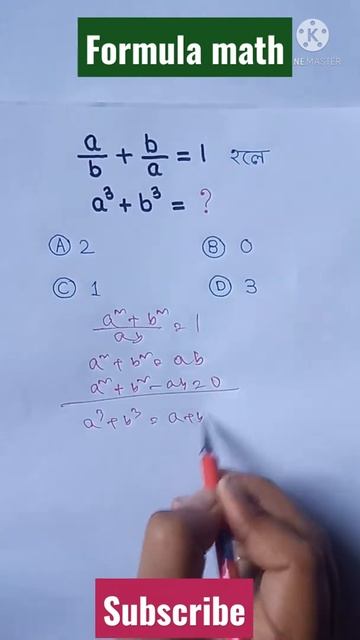 Formula math
K
NE MASTER
a/b + b/a = 1 হলে
a³ + b³ = ?
Ⓐ 2 Ⓑ 0
Ⓒ 1 Ⓓ 3
a² + b² / ab = 1
a² + b² = ab
a² + b² - ab = 0
a³ + b³ = a + b
Subscribe